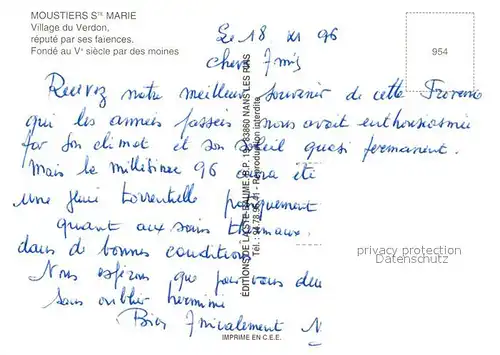 MOUSTIERS Ste MARIE
Village du Verdon,
réputé par ses faïences.
Fondé au Ve siècle par des moines
954
Le 18 XI 96
chers Amis
Recevez notre meilleur souvenir de cette Provence
qui les années passées nous avait enthousiasmée
par son climat et son soleil quasi permanent.
Mais le millésime 96 aura été
une pluie torrentielle pratiquement
quant aux soins thermaux
dans de bonnes conditions
Nous espérons que pour vous deux
sans oublier hermine
Bien Amicalement
EDITIONS DE LA STE-BAUME, B.P. 19, 83860 NANS LES PINS
Tél. : 94.78.95.41 - Reproduction interdite
privacy protection
Datenschutz
IMPRIMÉ EN C.E.E.